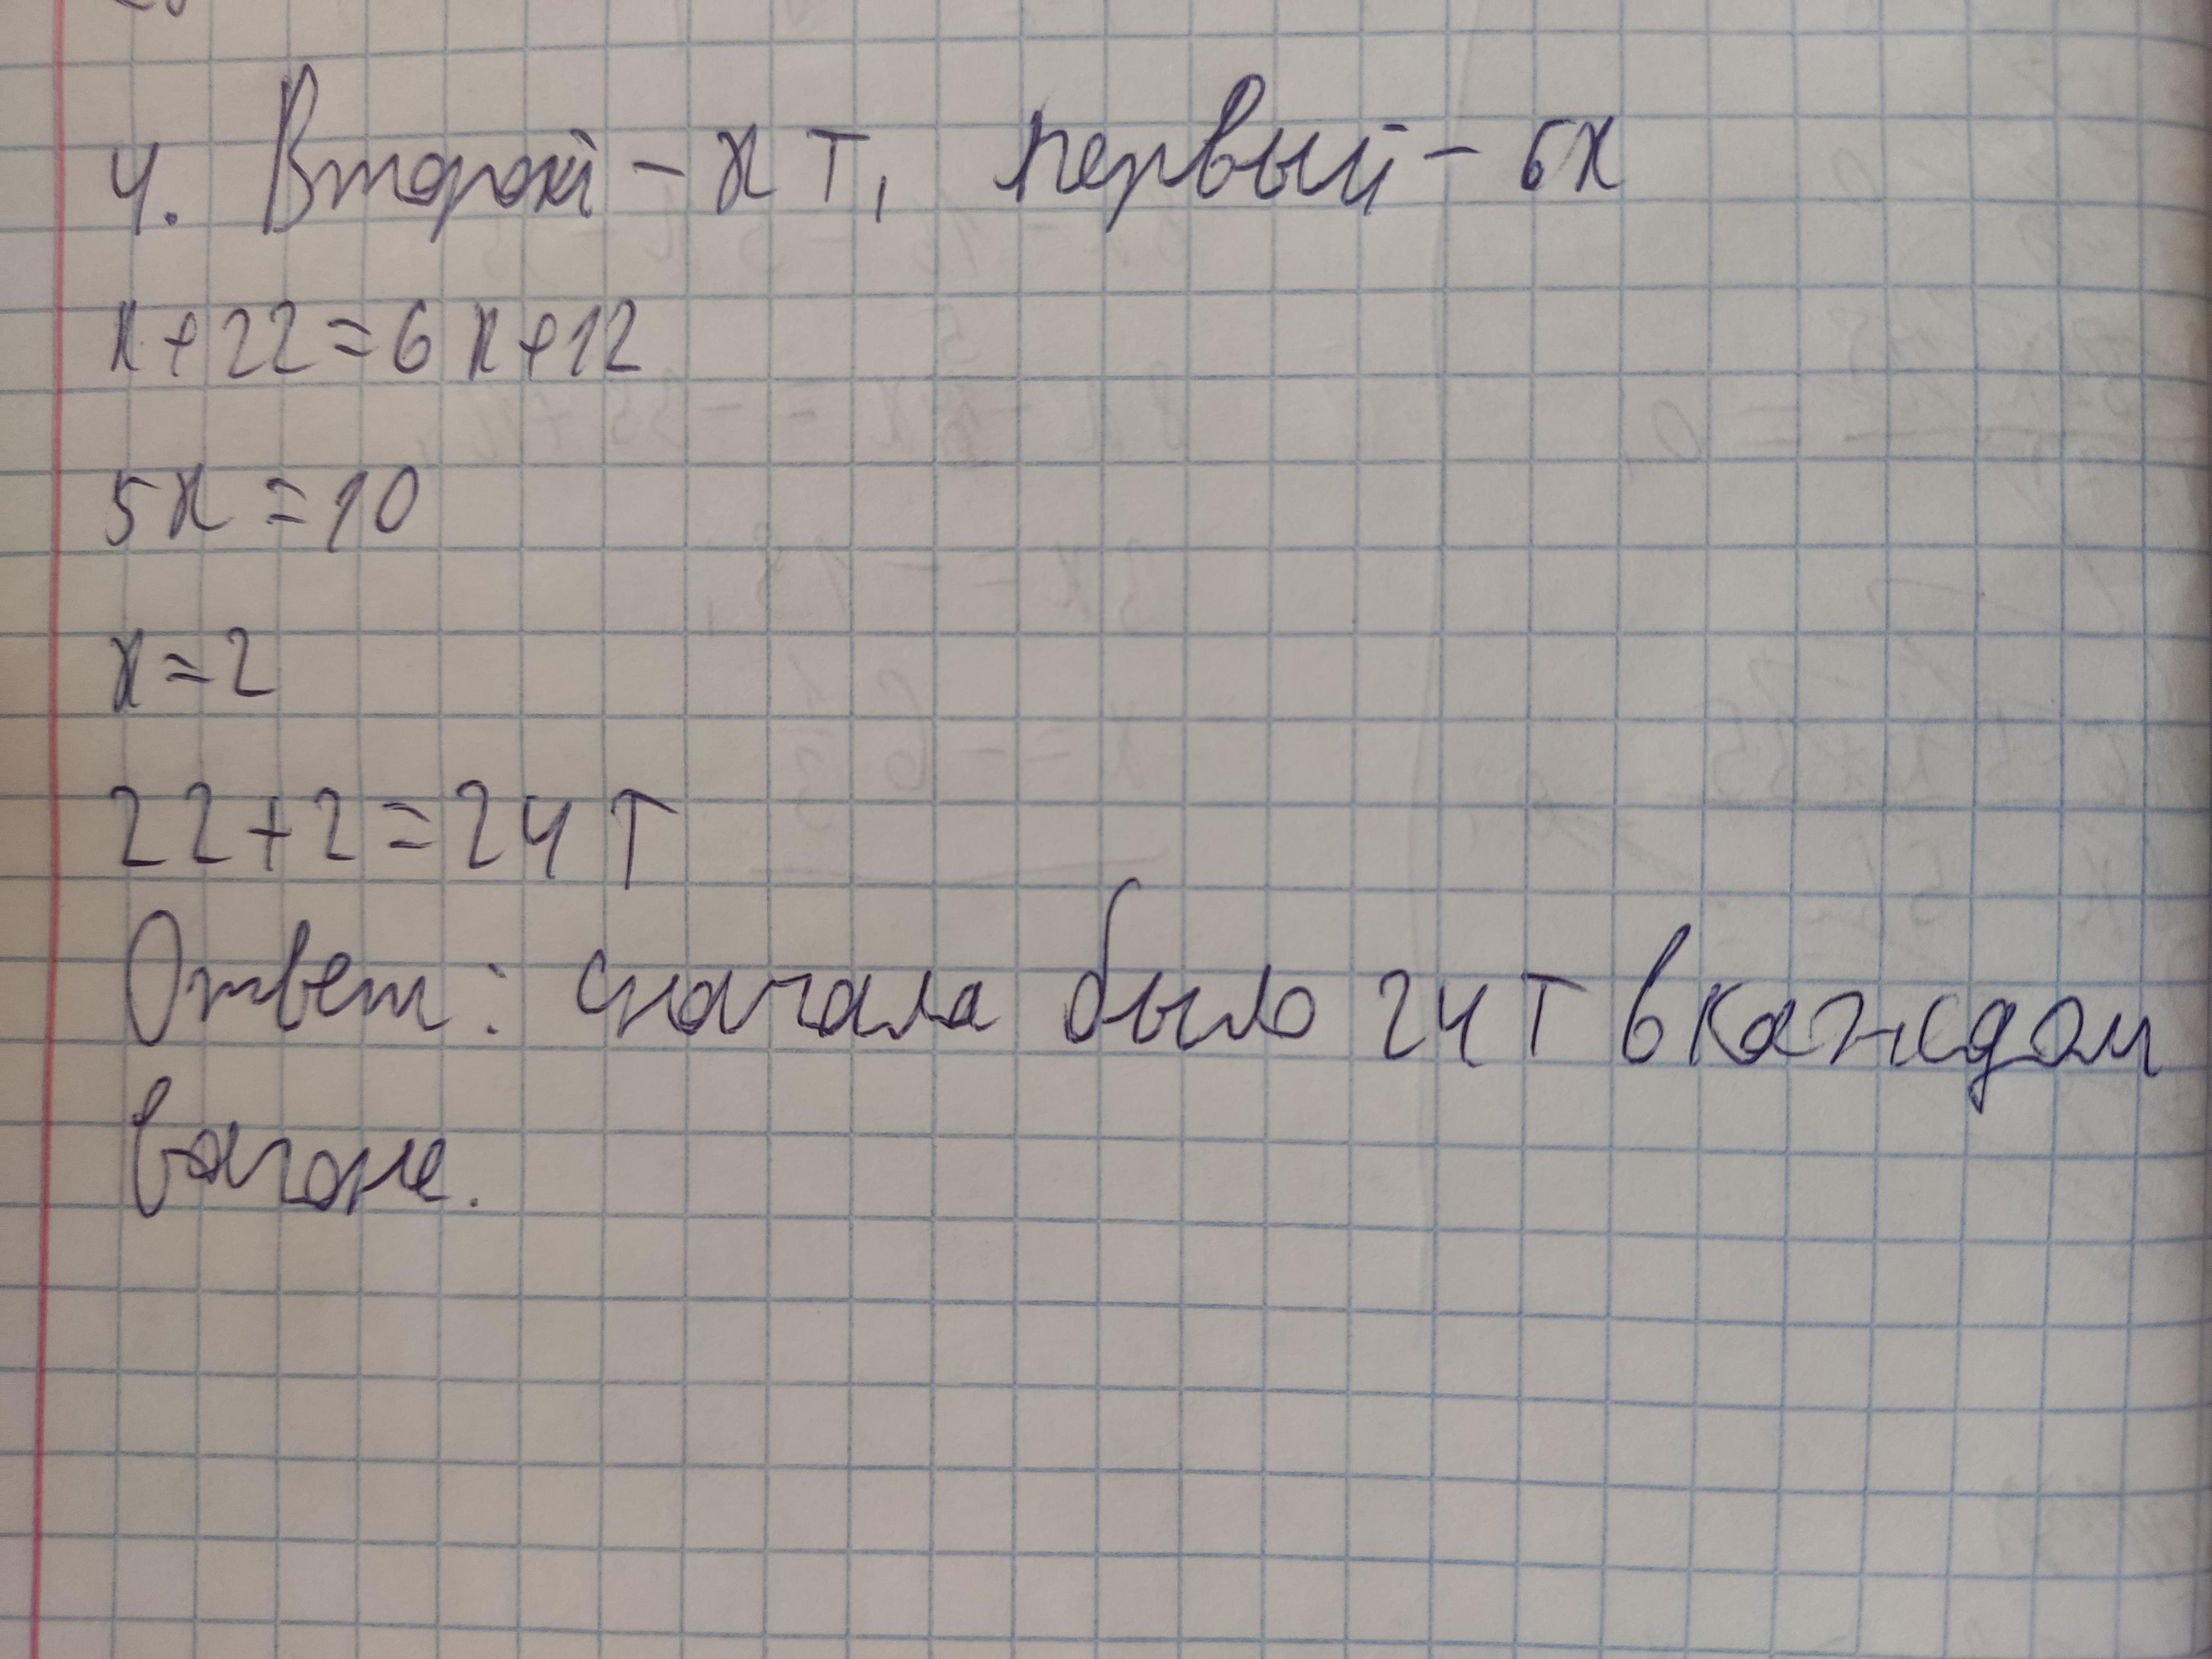 4. Второй – x т, первый – 6x
x+22=6x+12
5x=10
x=2
22+2=24 т
Ответ: сначала было 24 т в каждом
вагоне.